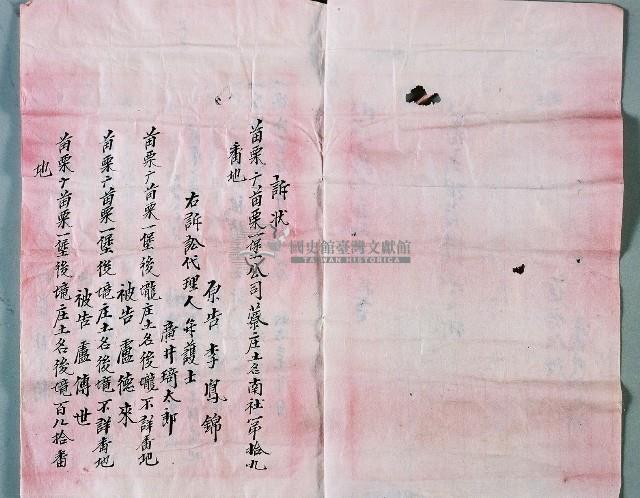 訴狀
苗栗廳苗栗一堡公司藔庄土名南社第拾九
番地
原告 李鳳錦
右訴訟代理人弁護士
廣井琦太郎
苗栗廳苗栗一堡後壠庄土名後壠不詳番地
被告 盧德來
苗栗廳苗栗一堡後境庄土名後境不詳番地
被告 盧傳世
苗栗廳苗栗一堡後境庄土名後境百八拾番
地
國史館臺灣文獻館
TAIWAN HISTORICA